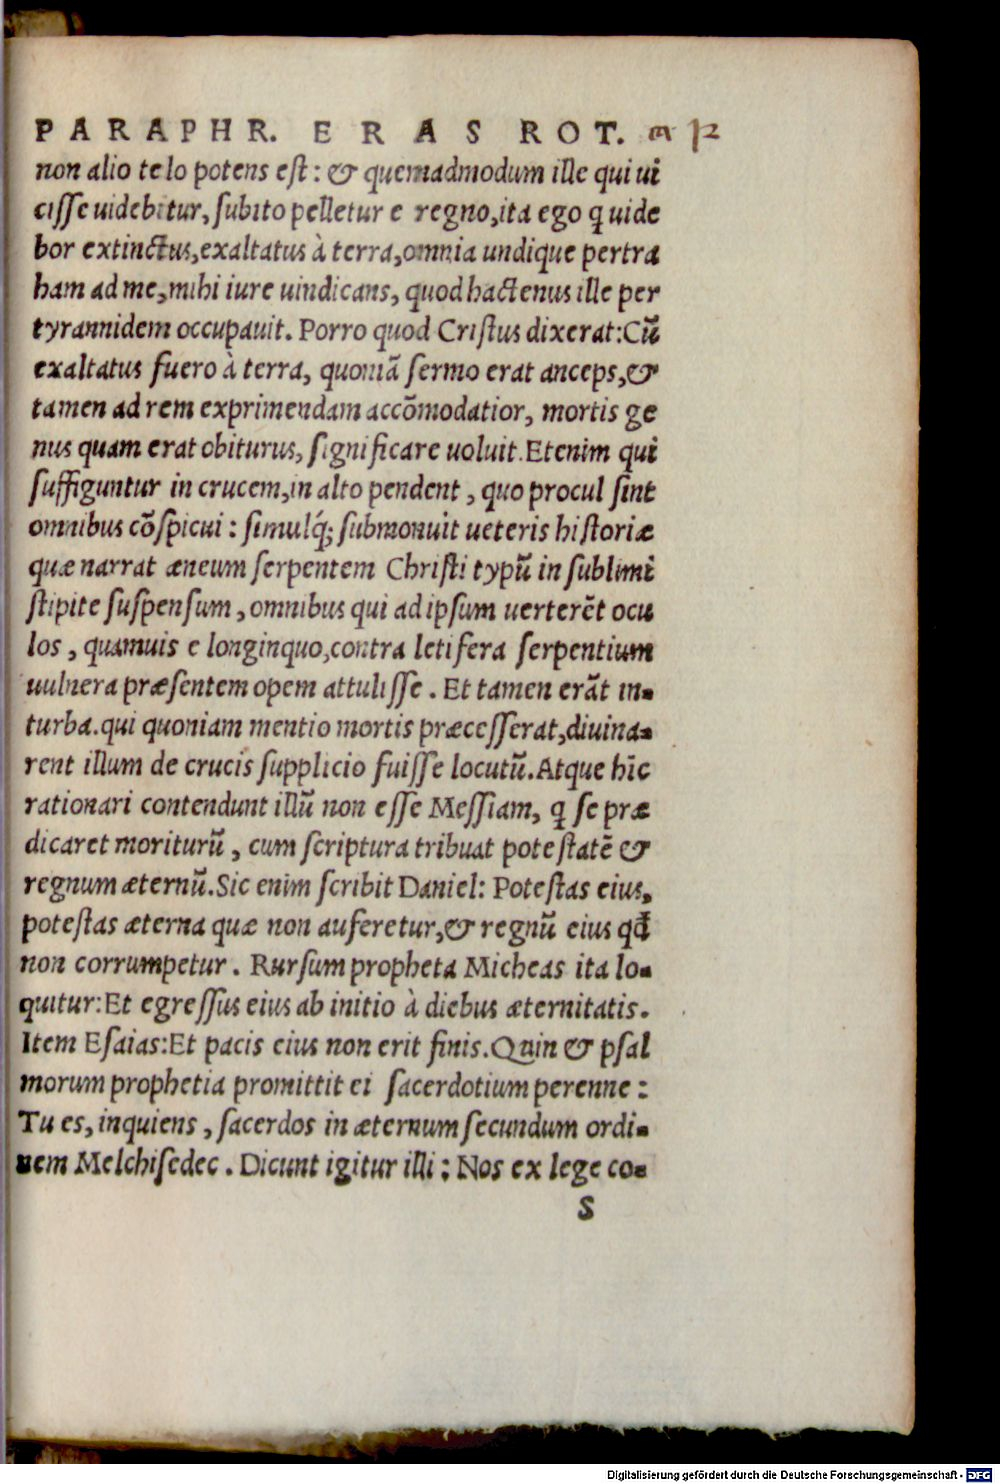 PARAPHR. ERAS ROT.
non alio telo potens est: & quemadmodum ille qui ui
cisse uidebitur, subito pelletur e regno, ita ego q uide
bor extinctus, exaltatus à terra, omnia undique pertra
ham ad me, mihi iure uindicans, quod hactenus ille per
tyrannidem occupauit. Porro quod Cristus dixerat: Cũ
exaltatus fuero à terra, quoniã sermo erat anceps, &
tamen ad rem exprimendam accõmodatior, mortis ge
nus quam erat obiturus, significare uoluit. Etenim qui
suffiguntur in crucem, in alto pendent, quo procul sint
omnibus cõspicui: simulq́; submonuit ueteris historiæ
quæ narrat æneum serpentem Christi typũ in sublimi
stipite suspensum, omnibus qui ad ipsum uerterẽt ocu
los, quamuis e longinquo, contra letifera serpentium
uulnera præsentem opem attulisse. Et tamen erãt in-
turba. qui quoniam mentio mortis præcesserat, diuina-
rent illum de crucis supplicio fuisse locutũ. Atque hĩc
rationari contendunt illũ non esse Messiam, q se præ
dicaret moriturũ, cum scriptura tribuat potestatẽ &
regnum æternũ. Sic enim scribit Daniel: Potestas eius,
potestas æterna quæ non auferetur, & regnũ eius qđ
non corrumpetur. Rursum propheta Micheas ita lo-
quitur: Et egressus eius ab initio à diebus æternitatis.
Item Esaias: Et pacis eius non erit finis. Quin & psal
morum prophetia promittit ei sacerdotium perenne:
Tu es, inquiens, sacerdos in æternum secundum ordi-
nem Melchisedec. Dicunt igitur illi: Nos ex lege co-
S
Digitalisierung gefördert durch die Deutsche Forschungsgemeinschaft - DFG